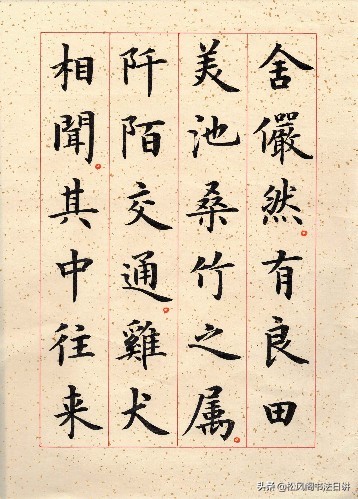 舍儼然有良田
美池桑竹之属
阡陌交通雞犬
相聞其中往来
头条@松风阁书法日讲